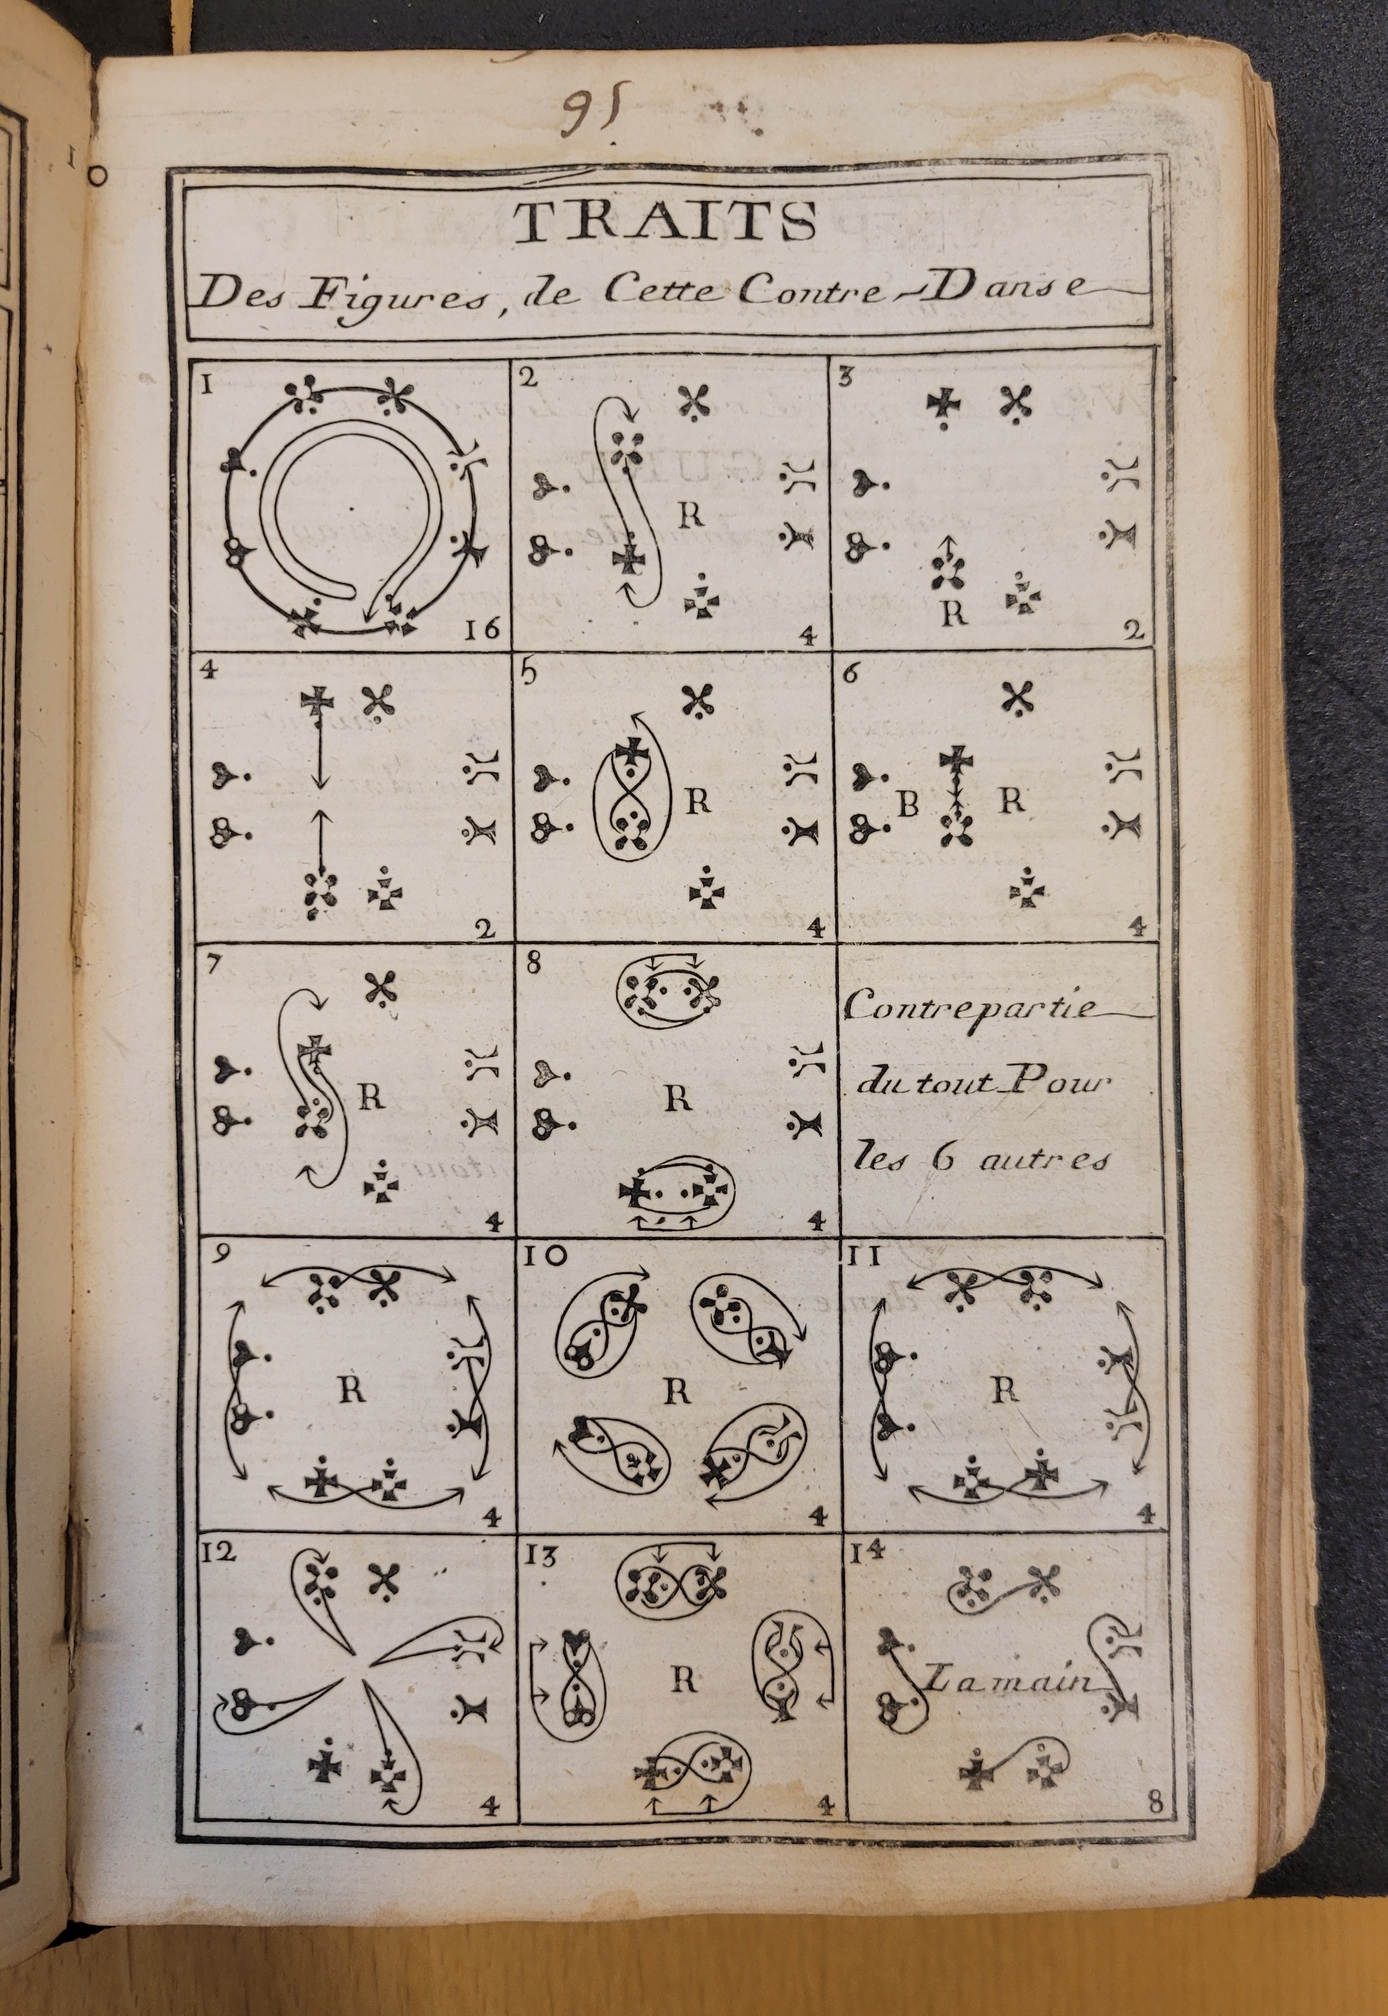 95
TRAITS
Des Figures, de Cette Contre-Danse
1
16
2
R
4
3
R
2
4
2
5
R
4
6
B R
4
7
R
4
8
R
4
Contrepartie
du tout Pour
les 6 autres
9
R
4
10
R
4
11
R
4
12
4
13
R
4
14
La main
8